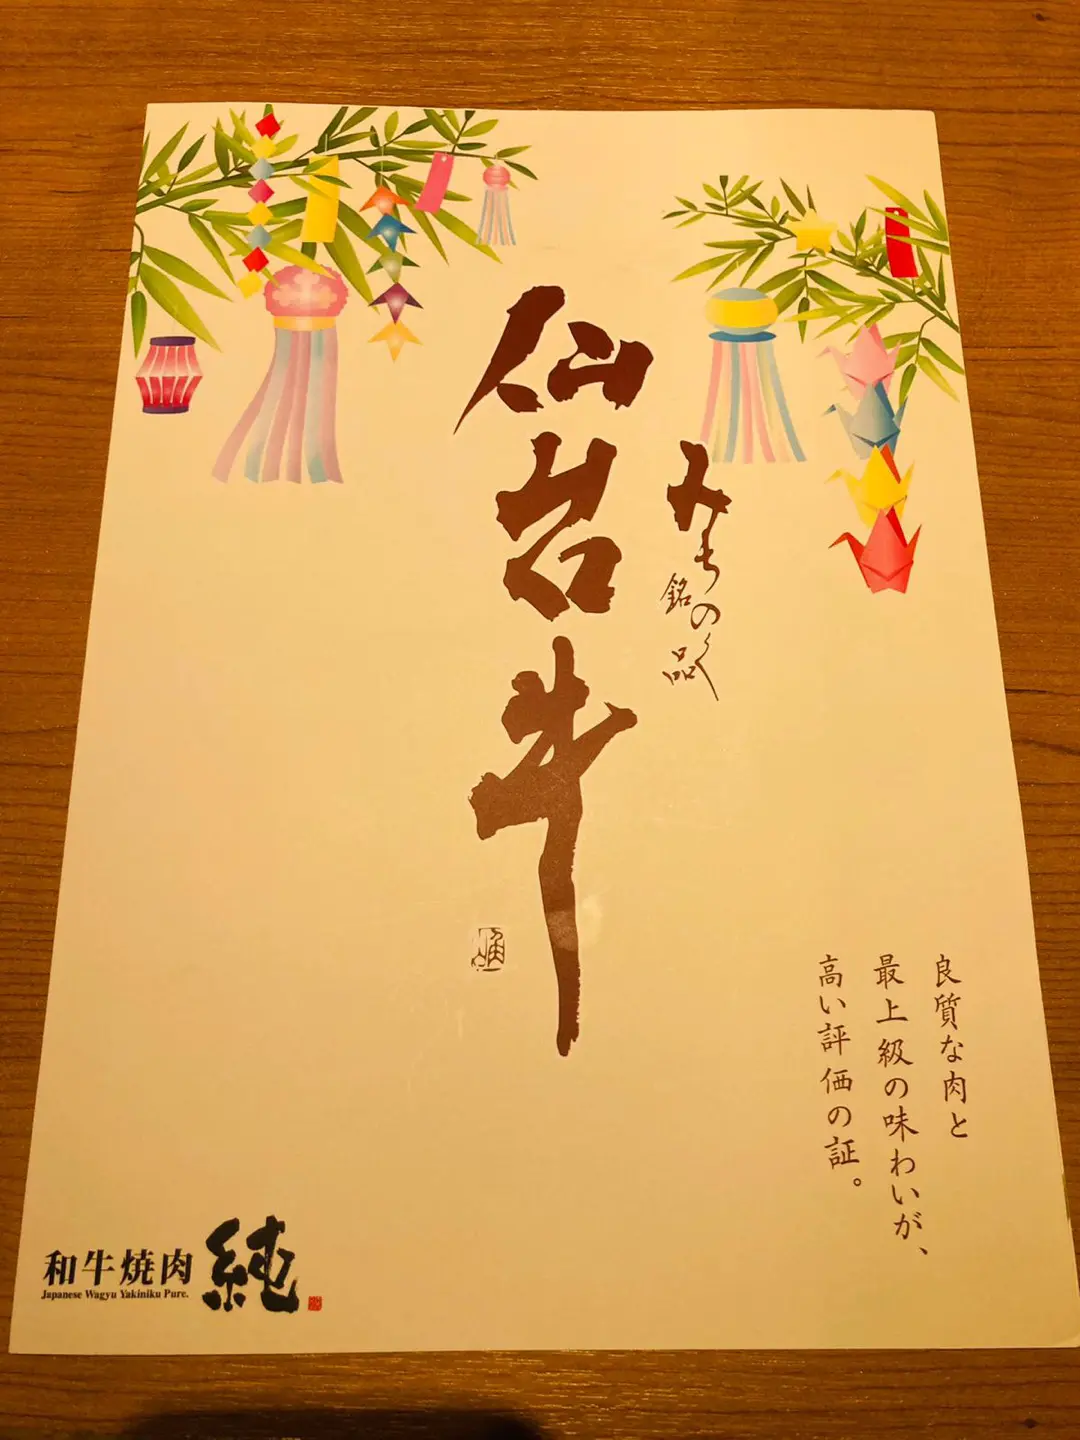 みちのく
銘品
仙台牛
良質な肉と
最上級の味わいが、
高い評価の証。
和牛焼肉
Japanese Wagyu Yakiniku Pure.
純